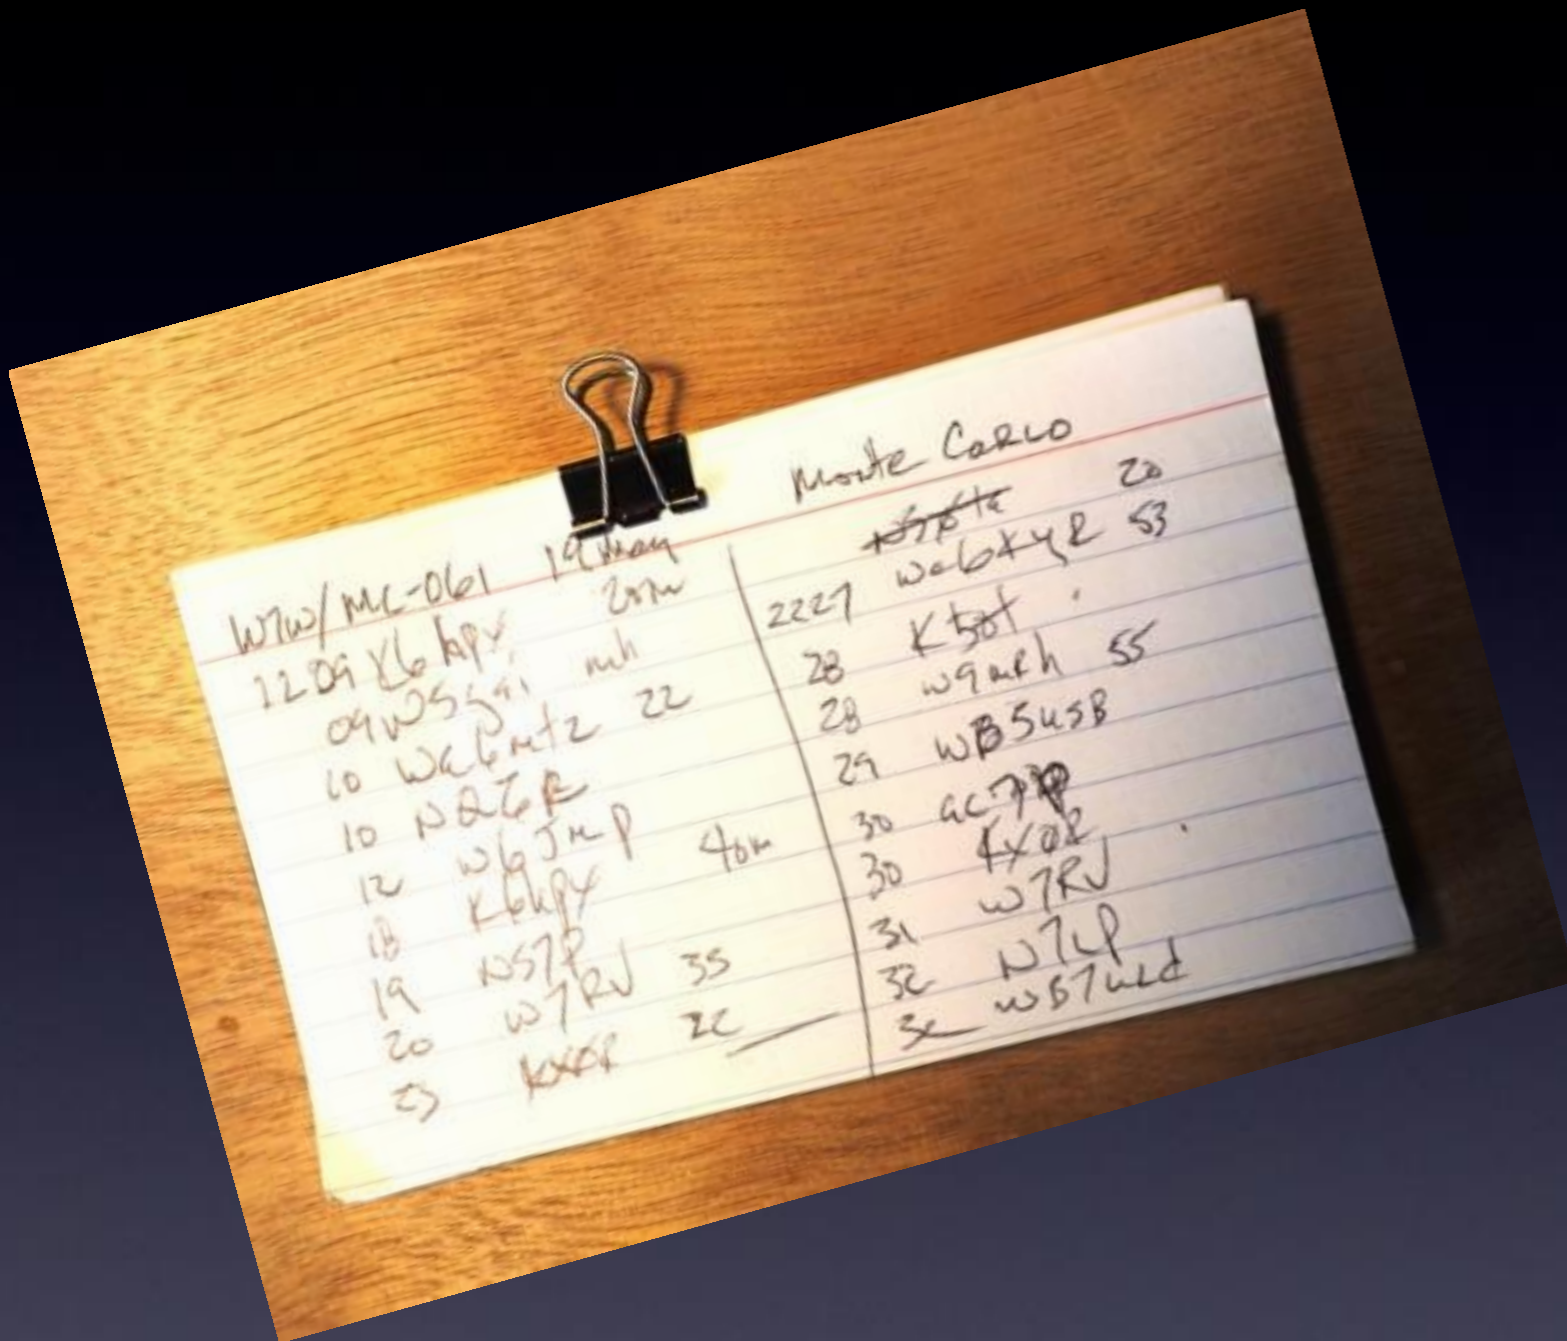 W7W/MC-061 19 May
1209 K6hpx 20m
09 W5 mh
10 Wa6mtz 22
10 NQ6R
12 W6Jmp
18 K6hpx 40m
19 NS7P
20 W7RV 35
23 22
Monte Carlo
20
2227 wa6xyR 53
28 K
28 w9mrh 55
29 WB5USB
30 ac7
30 KX0R
31 W7RV
32 N7LP
32 WB7uLd